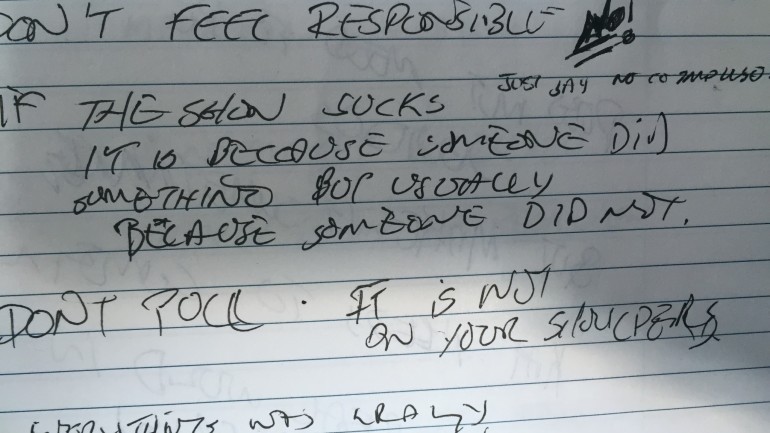 DON'T FEEL RESPONSIBLE NO!
JUST SAY NO COMPUSO
IF THE SHOW SUCKS
IT IS BECAUSE SOMEONE DID
SOMETHING BUT USUALLY
BECAUSE SOMEONE DID NOT.
DONT POLL . IT IS NOT
ON YOUR SHOULDERS
WAS